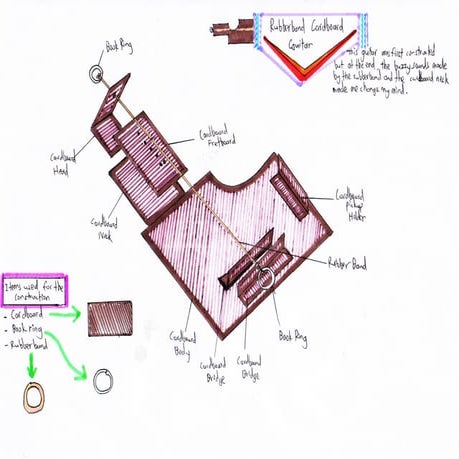 Rubberband Cardboard
Guitar
This guitar was first constructed
but at the end, the buzzy sounds made
by the rubberband and the cardboard neck
made me change my mind.
Book Ring
Cardboard
Fretboard
Cardboard
Head
Cardboard
Neck
Cardboard
Pickup
Holder
Rubber Band
Book Ring
Cardboard
Body
Cardboard
Bridge
Cardboard
Bridge
Items used for the
construction
- Cardboard
- Book ring
- Rubberband